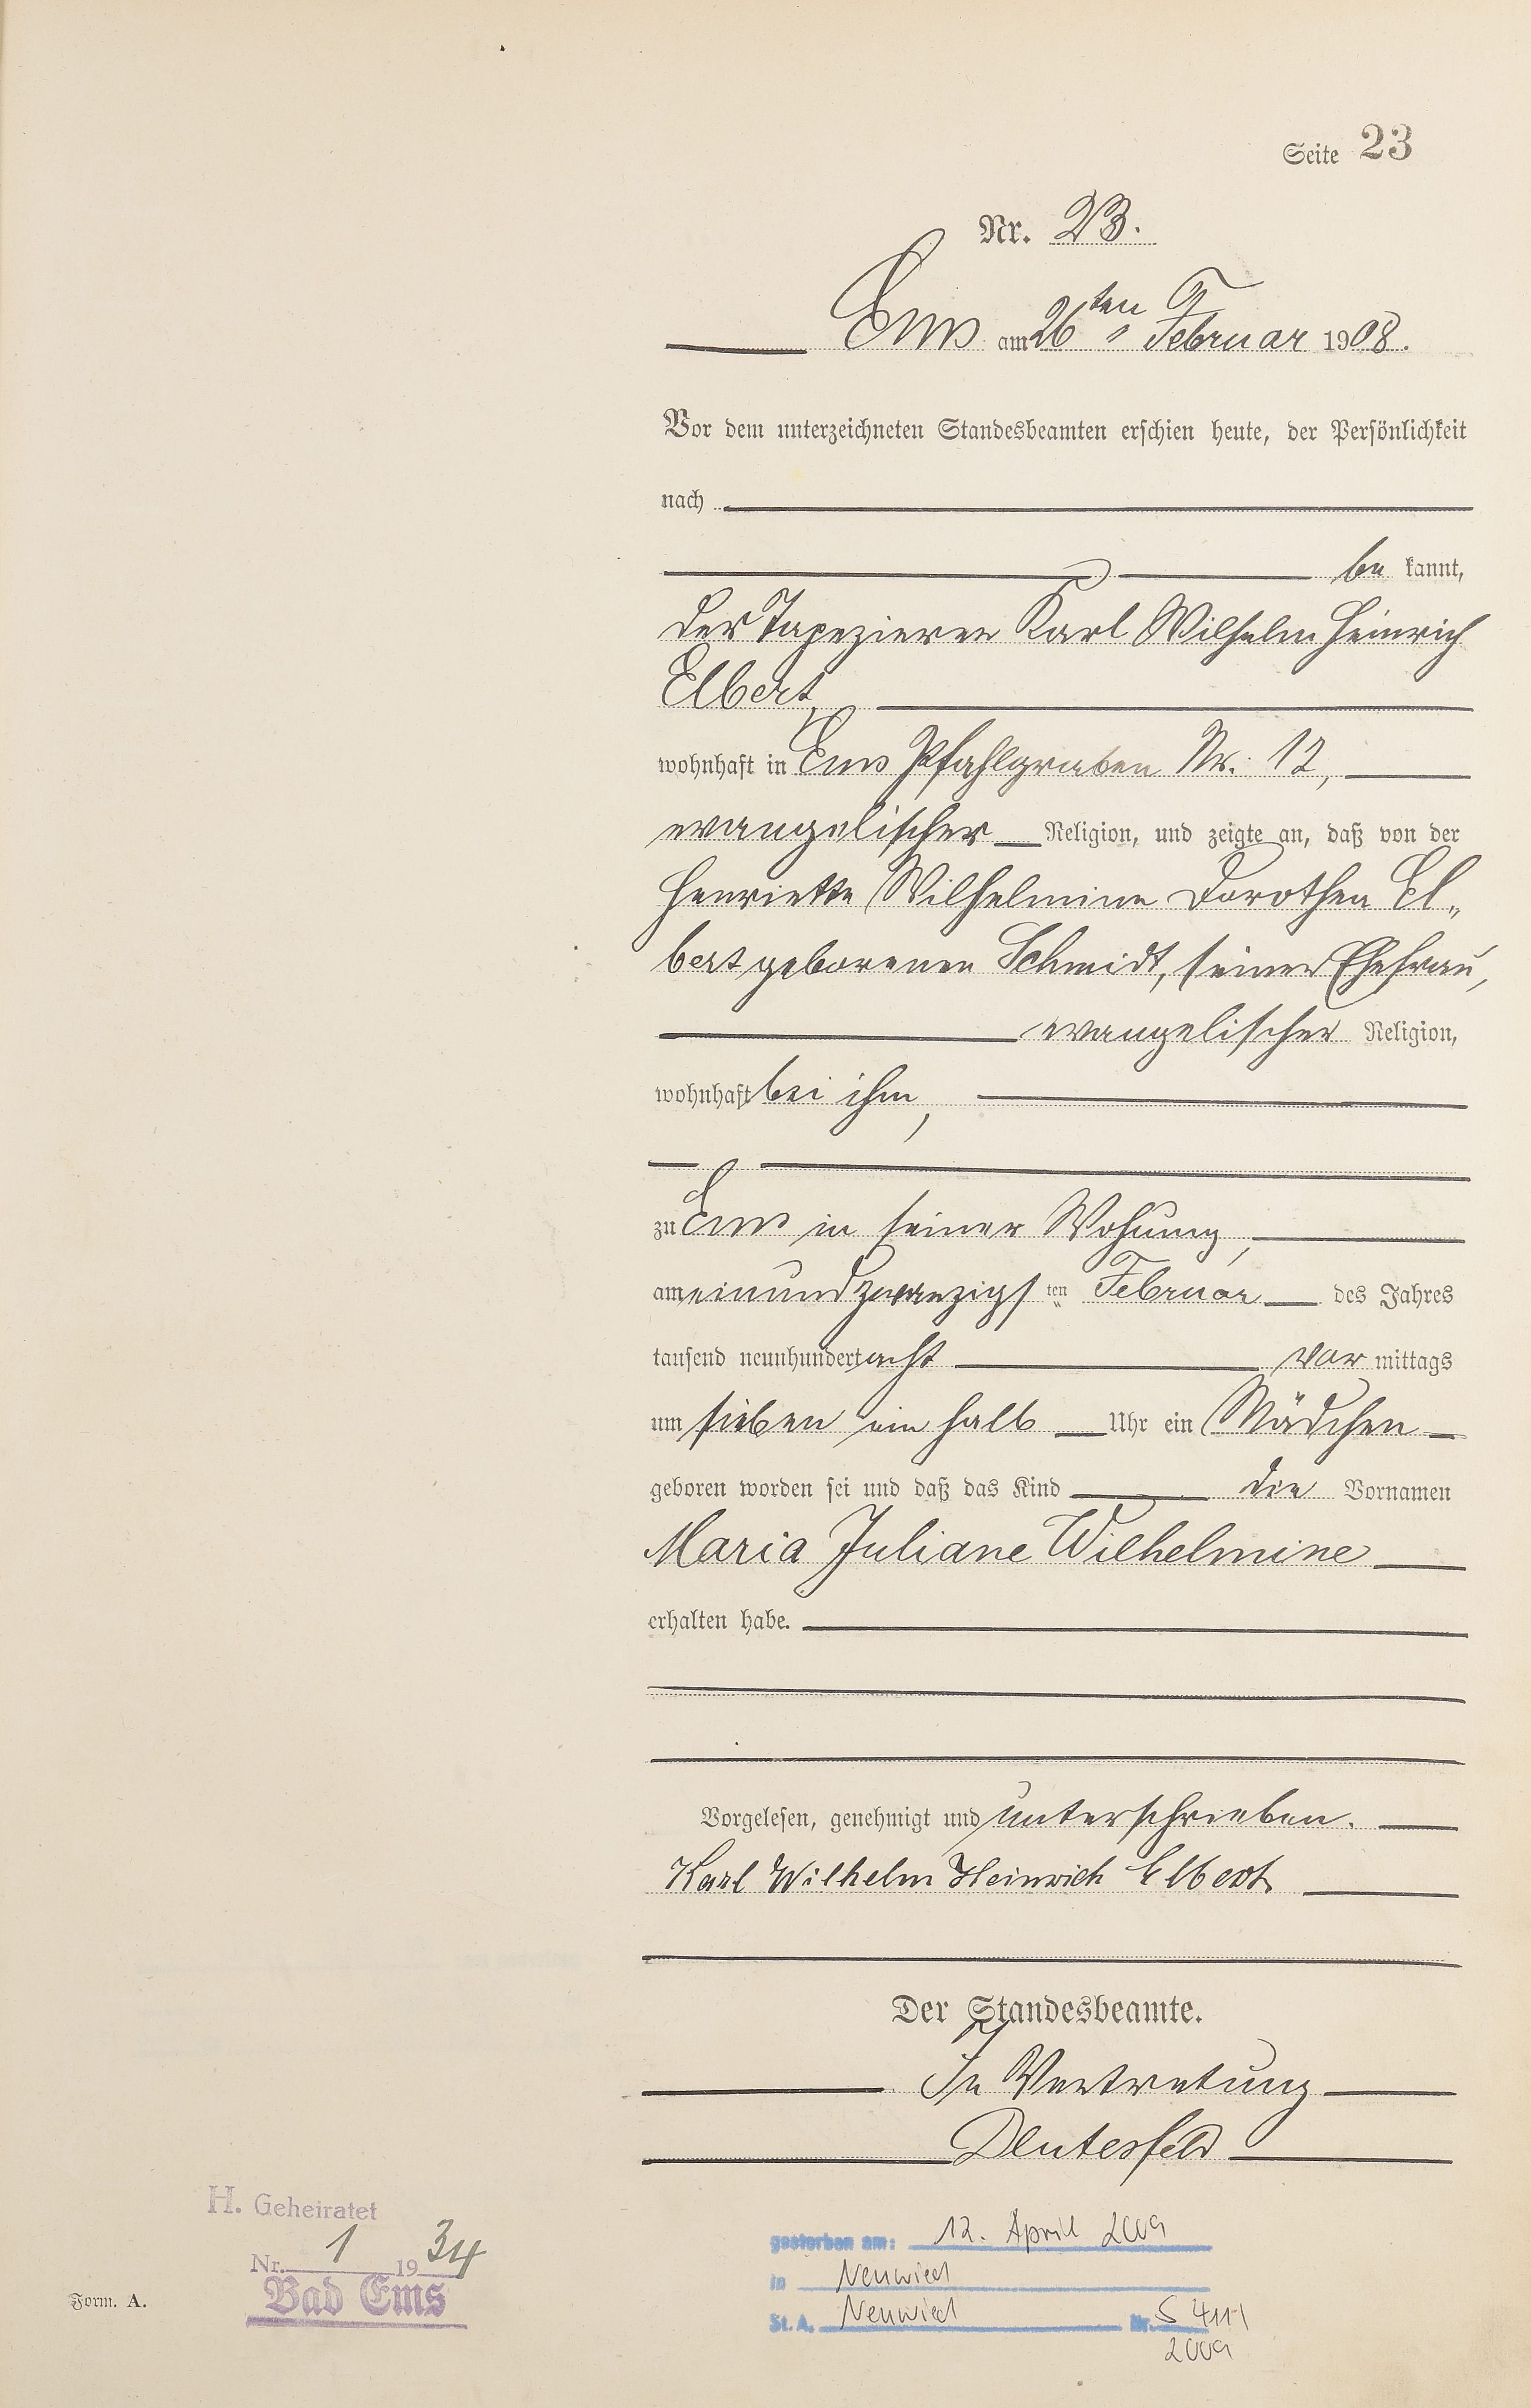 Seite 23
Nr. 23.
Ems am 26ten Februar 1908.
Vor dem unterzeichneten Standesbeamten erschien heute, der Persönlichkeit
nach
be kannt,
der Tapezierer Karl Wilhelm Heinrich
Elbert,
wohnhaft in Ems Pfahlgraben Nr. 12,
evangelischer Religion, und zeigte an, daß von der
Henriette Wilhelmine Dorothea El„
bert geborenen Schmidt, seiner Ehefrau,
evangelischer Religion,
wohnhaft bei ihm,
zu Ems in seiner Wohung,
am einundzwanzigsten Februar des Jahres
tausend neunhundert acht vor mittags
um sieben ein halb Uhr ein Mädchen
geboren worden sei und daß das Kind die Vornamen
Maria Juliane Wilhelmine
erhalten habe.
Vorgelesen, genehmigt und unterschrieben.
Karl Wilhelm Heinrich Elbert
Der Standesbeamte.
In Vertretung
Deutesfeld
H. Geheiratet
Nr. 1 1934
Bad Ems
Form. A.
gestorben am: 12. April 2009
in Neuwied
St. A. Neuwied Nr. S 411
2009